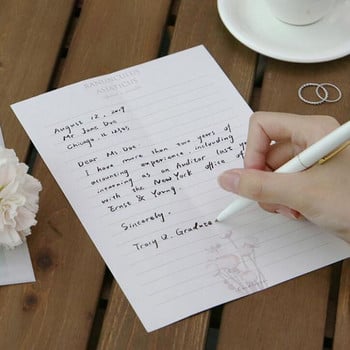 RANUNCULUS
ASIATICUS
August 12, 2019
Mr Jane Doe
Chicago, IL 12345
Dear Ms Doe
I have more than two years of
accounting experience, including
interning as an Auditor last year
with the New York office of
Ernst & Young.
Sincerely,
Tracy Q. Graduate